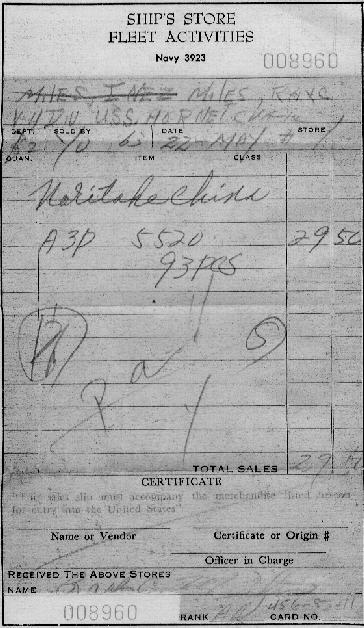 SHIP'S STORE
FLEET ACTIVITIES
Navy 3923
008960
MILES, INEZ MILES, RAY C.
U.S.S. HORNET
DEPT. SOLD BY DATE STORE
22 MAY # 1
QUAN. ITEM CLASS
Noritake China
A3P 5520 29 50
93 PCS
5
Pay
TOTAL SALES 29.50
CERTIFICATE
"This sales slip must accompany the merchandise listed hereon
for entry into the United States"
Name or Vendor Certificate or Origin #
Officer in Charge
RECEIVED THE ABOVE STORES
NAME
008960
RANK CARD NO.